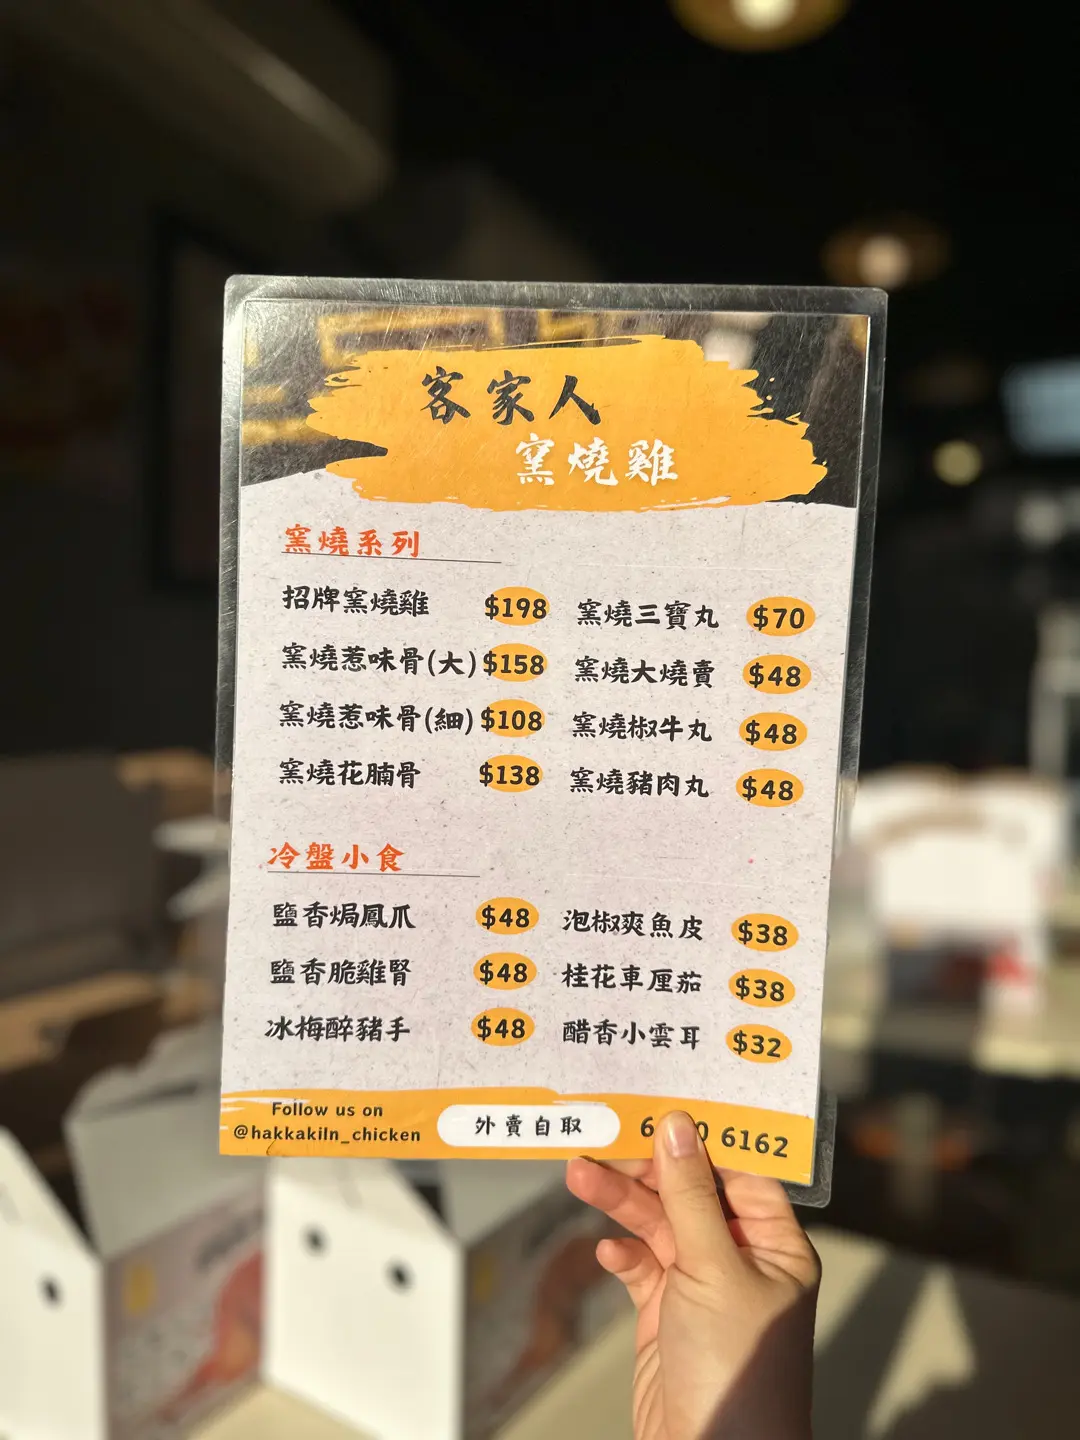 客家人
窯燒雞
窯燒系列
招牌窯燒雞 $198
窯燒惹味骨(大) $158
窯燒惹味骨(細) $108
窯燒花腩骨 $138
窯燒三寶丸 $70
窯燒大燒賣 $48
窯燒椒牛丸 $48
窯燒豬肉丸 $48
冷盤小食
鹽香焗鳳爪 $48
鹽香脆雞腎 $48
冰梅醉豬手 $48
泡椒爽魚皮 $38
桂花車厘茄 $38
醋香小雲耳 $32
Follow us on
@hakkakiln_chicken
外賣自取
6162